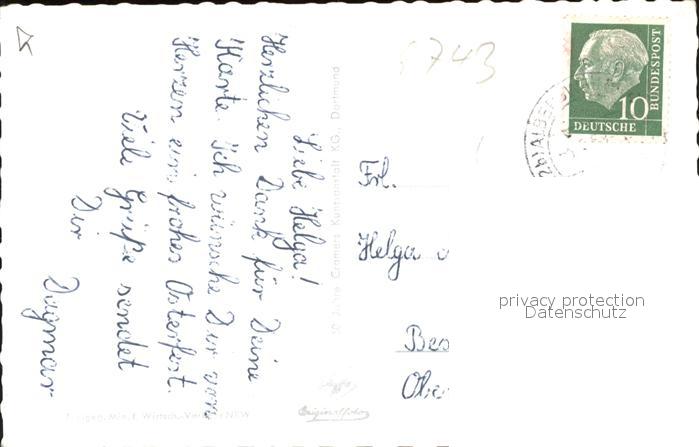 Liebe Helga!
Herzlichen Dank für Deine
Karte. Ich wünsche Dir von
Herzen ein frohes Osterfest.
Viele Grüße sendet
Dir
Dagmar
50 Jahre Cramers Kunstanstalt KG., Dortmund
Originalfoto
NRW
743
10
DEUTSCHE
BUNDESPOST
Frl.
Helga
Bes
Obe
privacy protection
Datenschutz